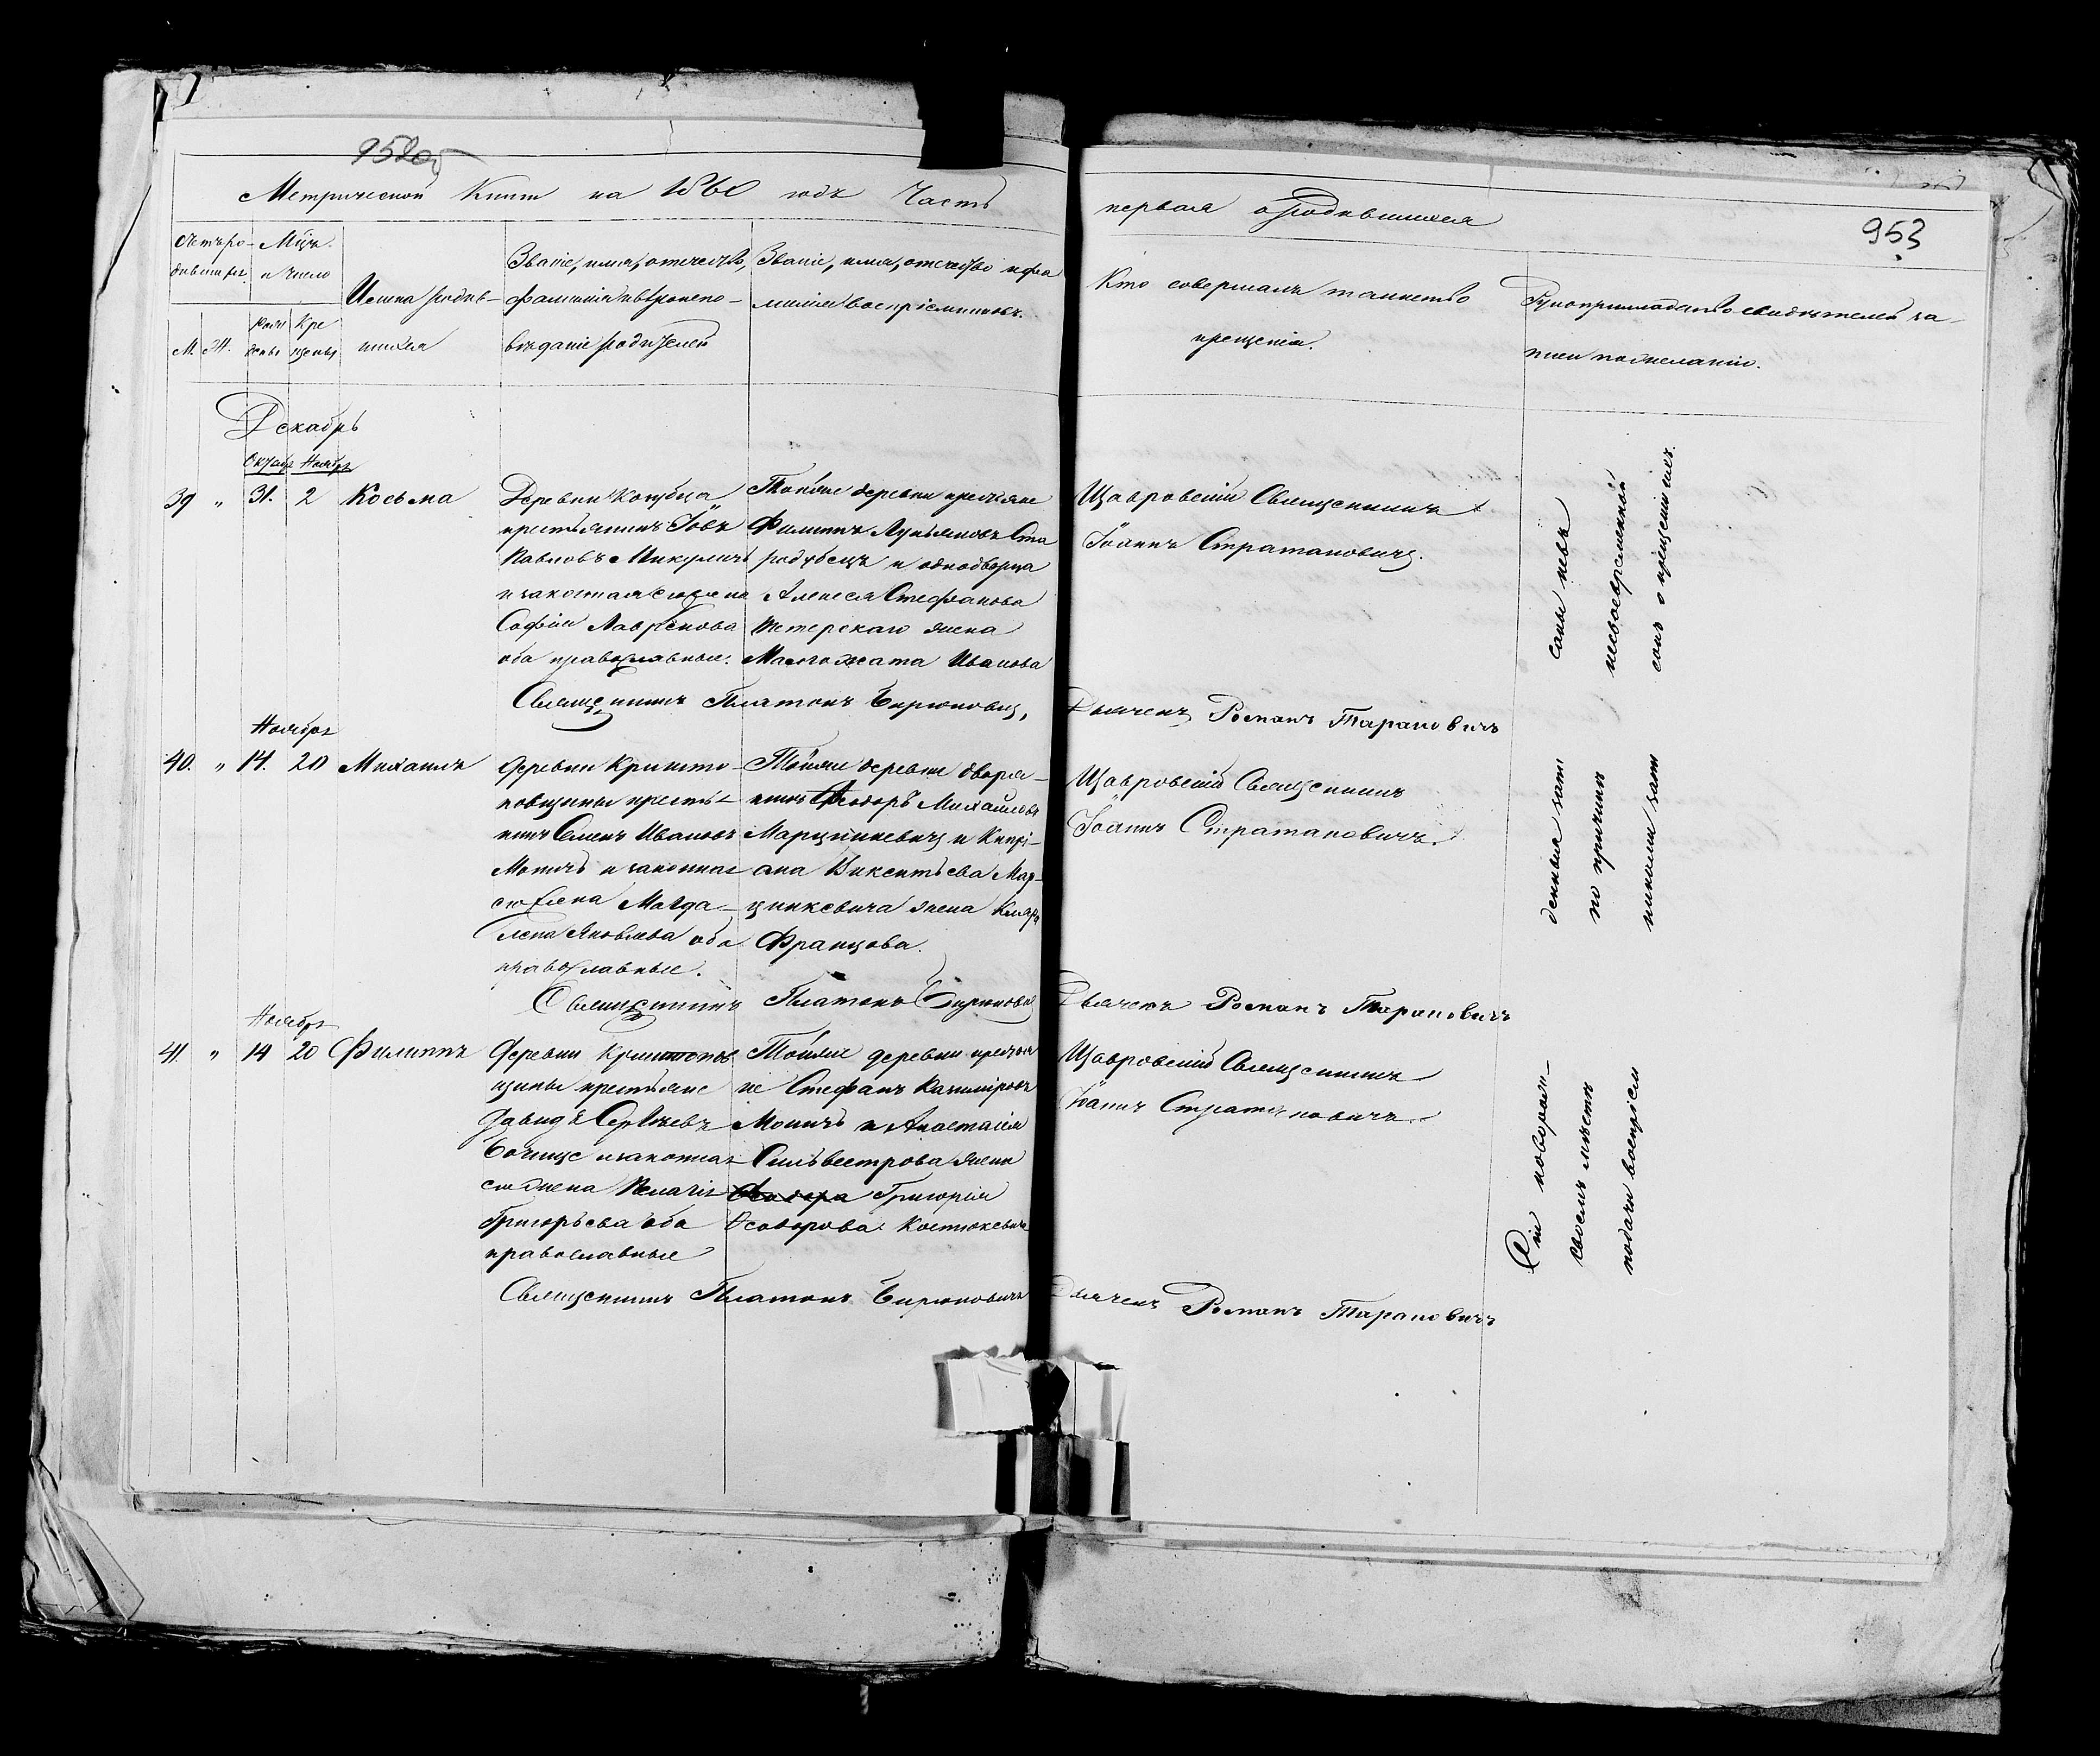 952об
Метрической Книги на 1860 годъ Часть
первая о родившихся
953
Счетъ ро-
дившихся.
М. Ж.
Мѣся.
и число
рож
денья
Кре
щенья
Имена родив-
шихся
Званіе, имя, отечество,
фамилія и вѣроиспо-
вѣданіе родителей
Званіе, имя, отечество и фа
милія воспріемниковъ.
Кто совершалъ таинство
крещенія.
Рукоприкладство свидѣтелей за-
писи по желанію.
Декабрь
Октябр Ноябр
39 „ 31. 2 Косьма
Деревни
крестьянинъ Іовъ
Павловъ Микуличъ
и законная его жена
Софія Лаврѣнова
оба православные.
Тойже деревни крестьяне
Филиппъ Лукьяновъ Ста
родубецъ и однодворца
Алексея Стефанова
Петерскаго жена
Малгожата Иванова
Щавровскій Священникъ
Іоаннъ Стратановичъ.
Священникъ Платонъ Бирюковичъ,
Дьячекъ Романъ Тарановичъ
Ноябрь
40. „ 14. 20 Михаилъ
Деревни Кришто-
повщины крестья-
нинъ Семенъ Ивановъ
Мотичъ и законная
его жена Магда-
лена Яковлева оба
православные.
Тойже деревни дворя-
нинъ Феодоръ Михайловъ
Марцинкевичъ и Кипрі-
ана Викентьева Мар-
цинкевича жена
Францова.
Щавровскій Священникъ
Іоаннъ Стратановичъ.
Священникъ Платонъ Бирюкович
Дьячекъ Романъ Тарановичъ
Ноябрь
41. „ 14 20 Филиппъ
Деревни Криштопов
щины крестьяне
Давидъ Сергѣевъ
и законная
его жена Пелагія
Григорьева оба
православные
Тойже деревни крестья
не Стефанъ Казиміровъ
Мотичъ и Анастасія
Сильвестрова жена
Феодора Григорія
Феодорова Костюкевича
Щавровскій Священникъ
Іоаннъ Стратановичъ.
Священникъ Платонъ Бирюковичъ
Дьячекъ Романъ Тарановичъ
Сіи новорож-
денные запи
саны не въ
своемъ мѣстѣ
по причинѣ
несвоевременной
подачи воспріем
никами запи
сокъ о крещеніи ихъ.